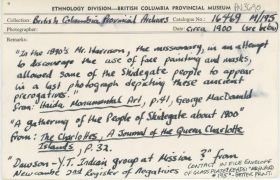 ETHNOLOGY DIVISION—BRITISH COLUMBIA PROVINCIAL MUSEUM PN3690
Collection: British Columbia Provincial Archives Catalogue No.: 16969 M/953
Place: Date: circa 1900 (see below)
Remarks:
"In the 1890's Mr. Harrison, the missionary, in an attempt
to discourage the use of face painting and masks,
allowed some of the Skidegate people to appear
in a last photograph depicting these ancient
prerogatives."
from: Haida Monumental Art, p.41, George MacDonald
"A gathering of the People of Skidegate about 1900"
from: The Charlottes, A Journal of the Queen Charlotte
Islands, p.32.
"Dawson - Y.T. Indian group at Mission?" from
Newcombe 2nd Register of Negatives
CONTACT IN FILE ENVELOPE
OF GLASS PLATE